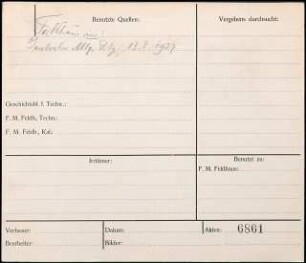 Benutzte Quellen:
Vergebens durchsucht:
Deutsche Allg. Ztg. 13. 8. 1927
Geschichtsbl. f. Techn.:
F. M. Feldh., Techn.:
F. M. Feldh., Kal:
Irrtümer:
Benutzt in:
F. M. Feldhaus:
Verfasser:
Datum:
Akten: 6861
Bearbeiter:
Bilder: